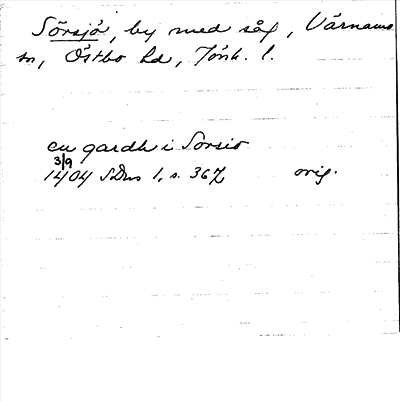 Sörsjö, by med såg, Värnamo
sn, Östbo hd, Jönk. l.
en gardh i Sorsio
3/9
1404 SDns 1, s. 367
orig.